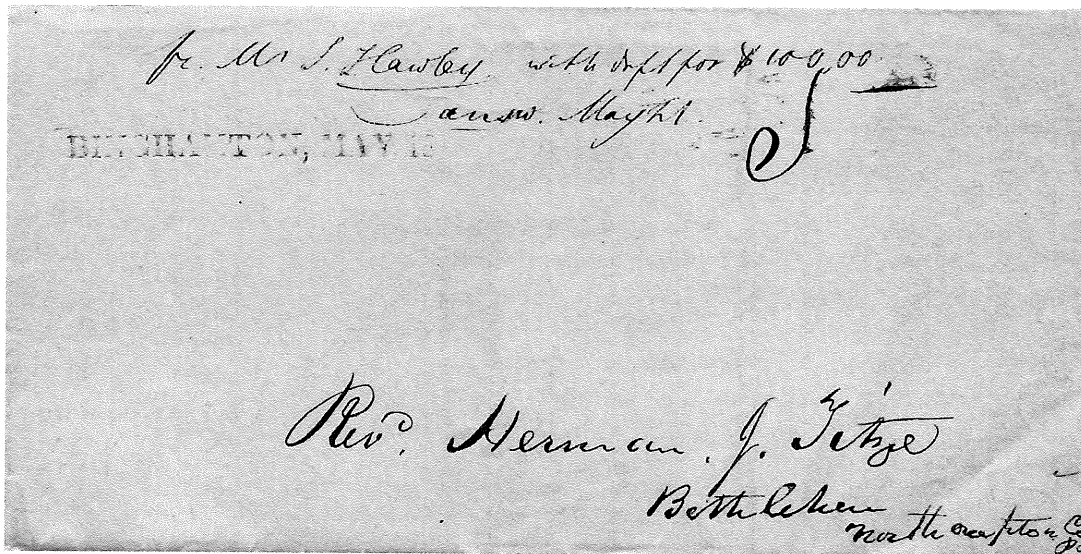 fr. Mr S. Hawley with dft for $100,00
answ. May 21.
BINGHAMTON, MAY 13
Revd. Herman J. Titze
Bethlehem
Northampton Co